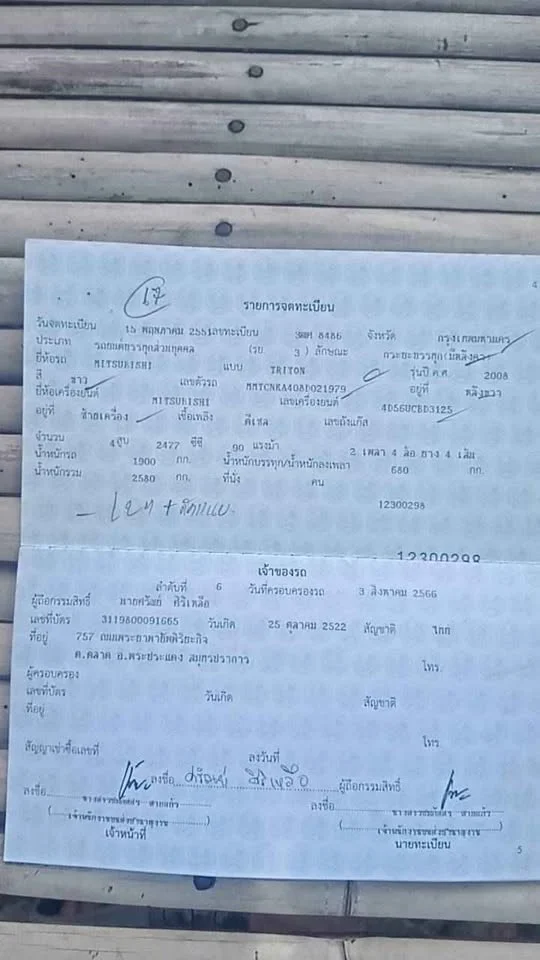 4
17
รายการจดทะเบียน
วันจดทะเบียน 15 พฤษภาคม 2551 เลขทะเบียน 8486 จังหวัด กรุงเทพมหานคร
ประเภท รถยนต์บรรทุกส่วนบุคคล (รย. 3 ) ลักษณะ กระบะบรรทุก(มีหลังคา)
ยี่ห้อรถ MITSUBISHI แบบ TRITON รุ่นปี ค.ศ. 2008
สี ขาว เลขตัวรถ MMTCNKA408D021979 อยู่ที่ หลังขวา
ยี่ห้อเครื่องยนต์ MITSUBISHI เลขเครื่องยนต์ 4D56UCBD3125
อยู่ที่ ซ้ายเครื่อง เชื้อเพลิง ดีเซล เลขถังแก๊ส
จำนวน 4 สูบ 2477 ซีซี 90 แรงม้า 2 เพลา 4 ล้อ ยาง 4 เส้น
น้ำหนักรถ 1900 กก. น้ำหนักบรรทุก/น้ำหนักลงเพลา 680 กก.
น้ำหนักรวม 2580 กก. ที่นั่ง คน
12300298
12300298
เจ้าของรถ
ลำดับที่ 6 วันที่ครอบครองรถ 3 สิงหาคม 2566
ผู้ถือกรรมสิทธิ์ นายศรัณย์ ศิริเหลือ
เลขที่บัตร 3119800091665 วันเกิด 25 ตุลาคม 2522 สัญชาติ ไทย
ที่อยู่ 757
ต.ตลาด อ.พระประแดง สมุทรปราการ โทร.
ผู้ครอบครอง
เลขที่บัตร วันเกิด สัญชาติ
ที่อยู่ โทร
สัญญาเช่าซื้อเลขที่ ลงวันที่
ลงชื่อ ศรัณย์ ศิริเหลือ ผู้ถือกรรมสิทธิ์
ลงชื่อ ลงชื่อ
เจ้าหน้าที่ นายทะเบียน
5